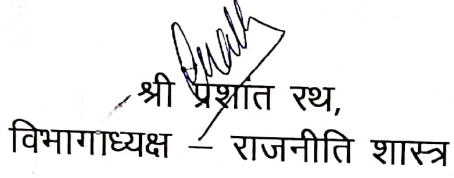 श्री प्रशांत रथ,
विभागाध्यक्ष – राजनीति शास्त्र